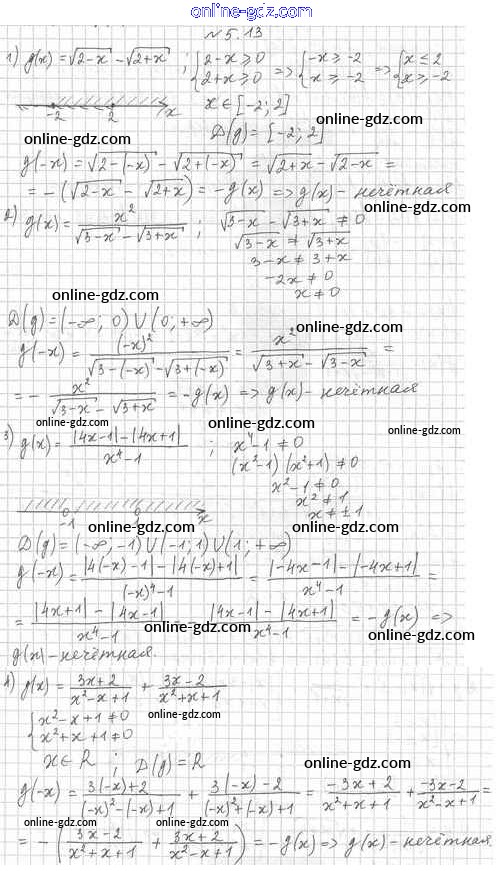 online-gdz.com
№5.13
1) g(x) = √2-x - √2+x ; {2-x ≥ 0 2+x ≥ 0 => {-x ≥ -2 x ≥ -2 => {x ≤ 2 x ≥ -2
-2 2 x x ∈ [-2; 2]
online-gdz.com online-gdz.com
D(g) = [-2; 2]
online-gdz.com
g(-x) = √2-(-x) - √2+(-x) = √2+x - √2-x =
= -(√2-x - √2+x) = -g(x) => g(x) - нечётная
online-gdz.com
2) g(x) = x²/(√3-x - √3+x) ; √3-x - √3+x ≠ 0
√3-x ≠ √3+x
3-x ≠ 3+x
-2x ≠ 0
x ≠ 0
online-gdz.com online-gdz.com
D(g) = (-∞; 0) ∪ (0; +∞)
online-gdz.com
g(-x) = (-x)²/(√3-(-x) - √3+(-x)) = x²/(√3+x - √3-x) =
= - x²/(√3-x - √3+x) = -g(x) => g(x) - нечётная
online-gdz.com online-gdz.com online-gdz.com
3) g(x) = (|4x-1|-|4x+1|)/(x⁴-1) ; x⁴-1 ≠ 0
(x²-1)(x²+1) ≠ 0
x²-1 ≠ 0
x² ≠ 1
x ≠ ±1
-1 1 x
online-gdz.com online-gdz.com
D(g) = (-∞; -1) ∪ (-1; 1) ∪ (1; +∞)
online-gdz.com
g(-x) = (|4(-x)-1|-|4(-x)+1|)/((-x)⁴-1) = (|-4x-1|-|-4x+1|)/(x⁴-1) =
= (|4x+1|-|4x-1|)/(x⁴-1) (|4x-1|-|4x+1|)/(x⁴-1) = -g(x) =>
online-gdz.com online-gdz.com
g(x) - нечётная.
4) g(x) = (3x+2)/(x²-x+1) + (3x-2)/(x²+x+1)
online-gdz.com
{x²-x+1 ≠ 0 x²+x+1 ≠ 0
x ∈ R ; D(g) = R
online-gdz.com
g(-x) = (3(-x)+2)/((-x)²-(-x)+1) + (3(-x)-2)/((-x)²+(-x)+1) = (-3x+2)/(x²+x+1) + (-3x-2)/(x²-x+1) =
online-gdz.com online-gdz.com online-gdz.com
= -((3x-2)/(x²+x+1) + (3x+2)/(x²-x+1)) = -g(x) => g(x) - нечётная.